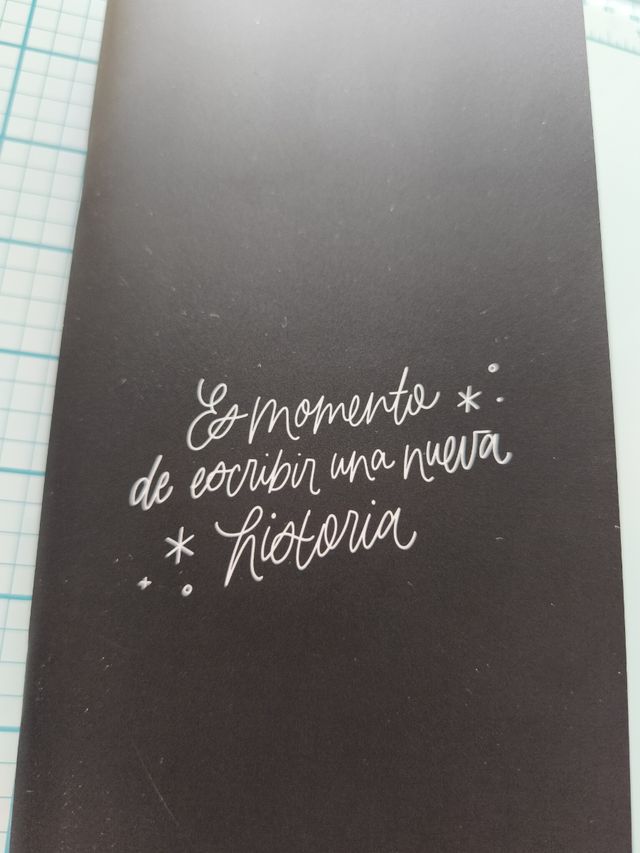 Es momento
de escribir una nueva
historia